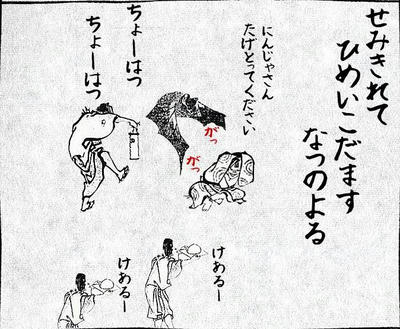 せみきれて
ひめいこだます
なつのよる
にんじゃさん
たげとってください
がっ
がっ
ちょーはつ
ちょーはつ
けあるー
けあるー